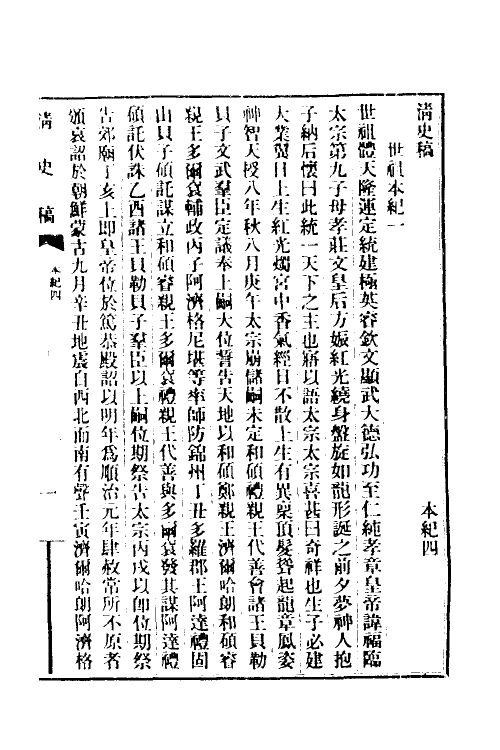 清史稿 本紀四
世祖本紀一
世祖體天隆運定統建極英睿欽文顯武大德弘功至仁純孝章皇帝諱福臨
太宗第九子母孝莊文皇后方娠紅光繞身盤旋如龍形誕之前夕夢神人抱
子納后懷曰此統一天下之主也寤以語太宗太宗喜甚曰奇祥也生子必建
大業翼日上生紅光燭宮中香氣經日不散上生有異稟頂髮聳起龍章鳳姿
神智天授八年秋八月庚午太宗崩儲嗣未定和碩禮親王代善會諸王貝勒
貝子文武羣臣定議奉上嗣大位誓告天地以和碩鄭親王濟爾哈朗和碩睿
親王多爾袞輔政丙子阿濟格尼堪等率師防錦州丁丑多羅郡王阿達禮固
山貝子碩託謀立和碩睿親王多爾袞禮親王代善與多爾袞發其謀阿達禮
碩託伏誅乙酉諸王貝勒貝子羣臣以上嗣位期祭告太宗丙戌以卽位期祭
告郊廟丁亥上卽皇帝位於篤恭殿詔以明年爲順治元年肆赦常所不原者
頒哀詔於朝鮮蒙古九月辛丑地震自西北而南有聲壬寅濟爾哈朗阿濟格
清史稿 本紀四 一